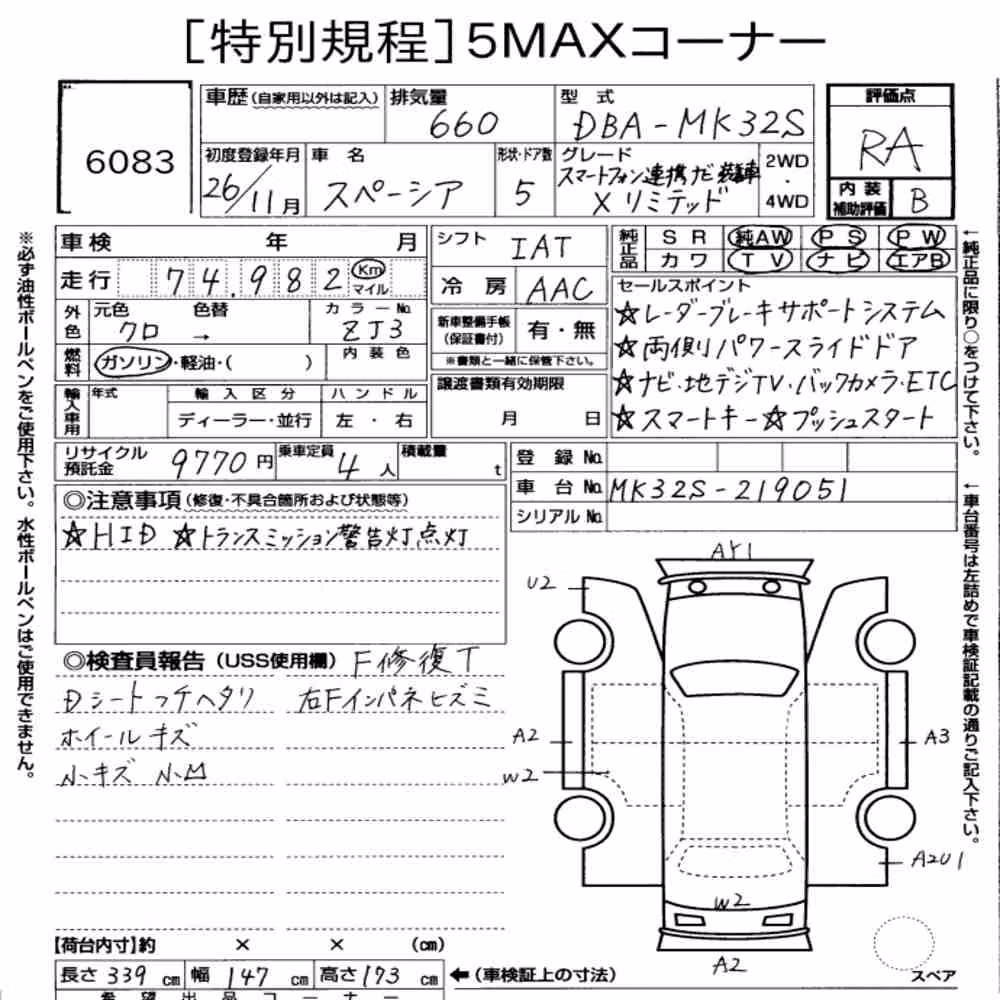 ［特別規程］5MAXコーナー
6083
車歴（自家用以外は記入）
排気量
660
型式
DBA-MK32S
評価点
RA
内装補助評価
B
初度登録年月
26/11月
車名
スペーシア
形状・ドア数
5
グレード
スマートフォン連携ナビ装着車
Xリミテッド
2WD
・
4WD
車検 年 月
走行 74.982 Km
マイル
外色
元色 色替
クロ →
カラーNo.
ZJ3
燃料
ガソリン・軽油・( )
内装色
輸入車用
年式
輸入区分
ディーラー・並行
ハンドル
左・右
シフト
IAT
冷房
AAC
新車整備手帳
（保証書付）
有・無
※書類と一緒に保管下さい。
譲渡書類有効期限
月 日
純正品
SR 純AW PS PW
カワ TV ナビ エアB
セールスポイント
☆レーダーブレーキサポートシステム
☆両側パワースライドドア
☆ナビ・地デジTV・バックカメラ・ETC
☆スマートキー☆プッシュスタート
リサイクル預託金
9770円
乗車定員
4人
積載量
t
登録No.
車台No.
MK32S-219051
シリアルNo.
◎注意事項（修復・不具合箇所および状態等）
☆HID ☆トランスミッション警告灯点灯
◎検査員報告（USS使用欄）F修復T
Dシートコゲヘタリ 右Fインパネヒズミ
ホイールキズ
小キズ 小凹
AY1
U2
A2
A3
W2
A2U1
W2
A2
スペア
【荷台内寸】約 × × （cm）
長さ339cm 幅147cm 高さ173cm
←（車検証上の寸法）
希望出品コーナー
※必ず油性ボールペンをご使用下さい。水性ボールペンはご使用できません。
←純正品に限り○をつけて下さい。
←車台番号は左詰めで車検証記載の通りご記入下さい。